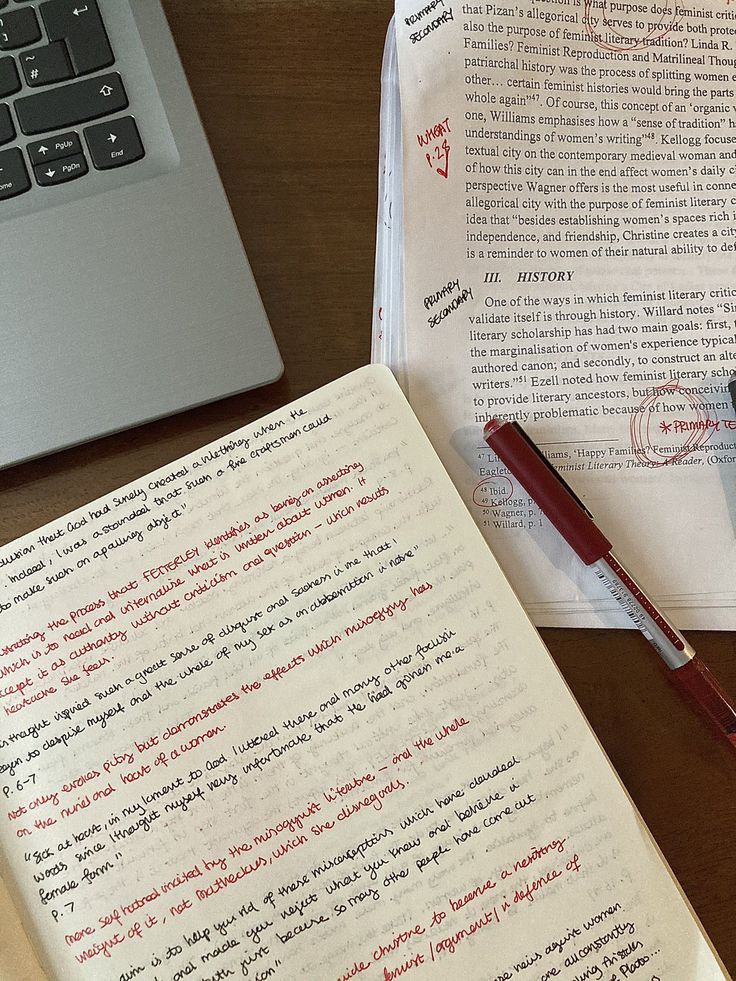 #
~
PgUp
PgDn
End
Home
PRIMARY
SECONDARY
is what purpose does feminist critic
that Pizan's allegorical city serves to provide both prote
also the purpose of feminist literary tradition? Linda R.
Families? Feminist Reproduction and Matrilineal Thoug
patriarchal history was the process of splitting women
other… certain feminist histories would bring the parts
whole again”47. Of course, this concept of an ‘organic
one, Williams emphasises how a “sense of tradition” h
understandings of women's writing”48. Kellogg focuse
textual city on the contemporary medieval woman and
of how this city can in the end affect women's daily
perspective Wagner offers is the most useful in conne
allegorical city with the purpose of feminist literary
idea that “besides establishing women's spaces rich i
independence, and friendship, Christine creates a city
is a reminder to women of their natural ability to def
WHEAT
P.28
PRIMARY
SECONDARY
III. HISTORY
One of the ways in which feminist literary critic
validate itself is through history. Willard notes “Sin
literary scholarship has had two main goals: first,
the marginalisation of women's experience typical
authored canon; and secondly, to construct an alte
writers.”51 Ezell noted how feminist literary scho
to provide literary ancestors, but how conceiving
inherently problematic because of how women
*PRIMARY TE
47 Williams, ‘Happy Families? Feminist Reproduct
Eagleton Feminist Literary Theory: A Reader, (Oxfor
48 Ibid.
49 Kellogg, p.
50 Wagner, p.
51 Willard, p. 1
that God had surely created a vile thing when He
indeed, I was astounded that such a fine craftsman could
to make such an appalling object”
the process that FETTERLEY identifies as being an assenting
which is to read and internalise what is written about women. It
accept it as authority without criticism and question – which results
heartache she feels.
thought inspired such a great sense of disgust and sadness in me that I
began to despise myself and the whole of my sex as an abberrition in nature”
P. 6-7
Not only evokes pity but demonstrates the effects which misogyny has
on the mind and heart of a woman.
“Sick at heart, in my lament to God I uttered these and many other foolish
words since I thought myself very unfortunate that He had given me a
female form.”
P. 7
more self hatred incited by the misogynist literature – and the whole
weight of it, not Matheolus, which she disregards.
aim is to help you rid of these misconceptions which have clouded
and made you reject what you know and believe in
truth just because so many other people have come out
guide christine to become a resisting
feminist /argument/ in defence of
these views against women
one all constantly
Aristotle
Plato...